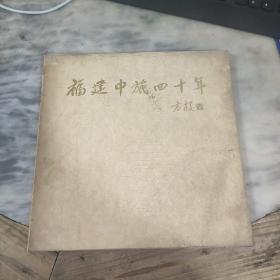 福建中旅四十年
方毅